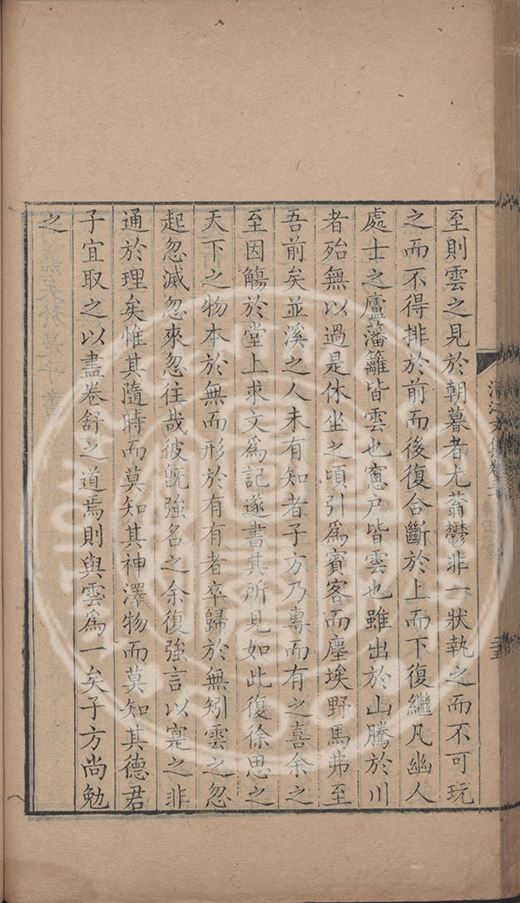 至則雲之見於朝暮者尤蓊鬱非一狀執之而不可玩
之而不得排於前而後復合斷於上而下復繼凡幽人
處士之廬藩籬皆雲也窻户皆雲也雖出於山騰於川
者殆無以過是休坐之頃引爲賓客而塵埃野馬弗至
吾前矣並溪之人未有知者子方乃專而有之喜余之
至因觴於堂上求文爲記遂書其所見如此復徐思之
天下之物本於無而形於有有者卒歸於無矧雲之忽
起忽滅忽來忽往哉彼旣強名之余復強言以寔之非
通於理矣惟其隨時而莫知其神澤物而莫知其德君
子宜取之以盡卷舒之道焉則與雲爲一矣子方尚勉
之